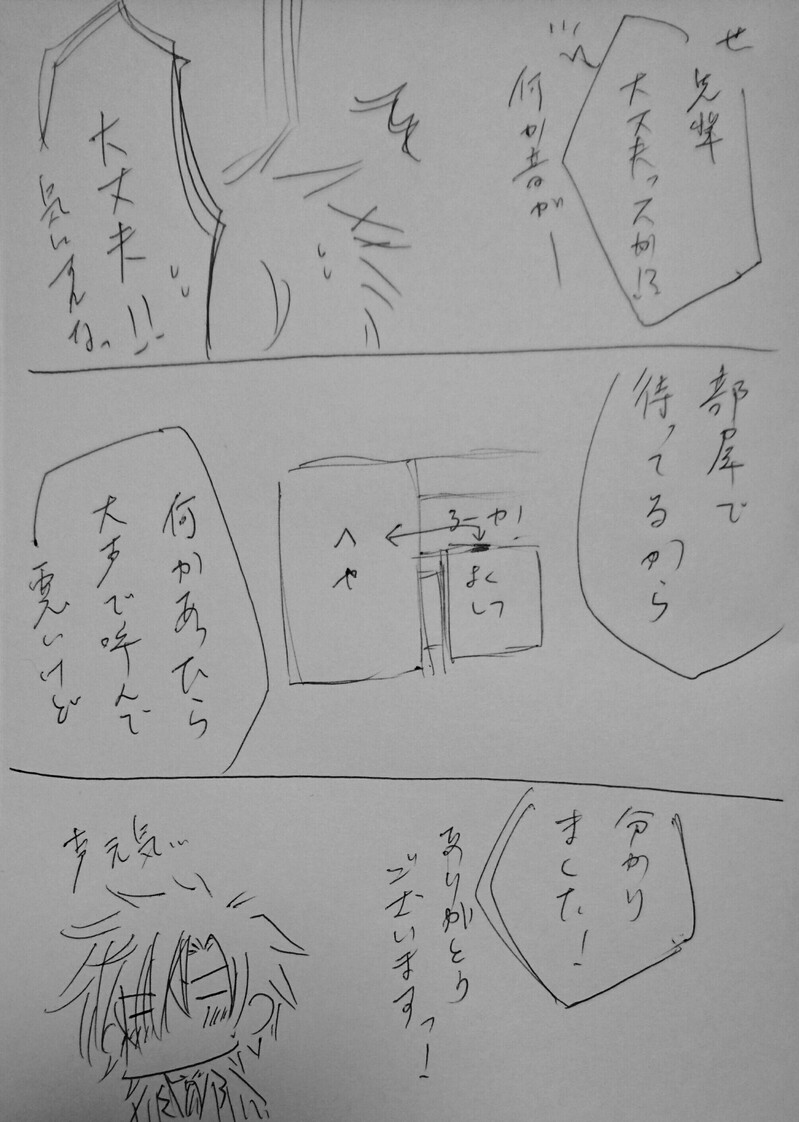 せ
先輩
大丈夫っスか!?
何か音がー
大丈夫!!
気にすんなっ
部屋で
待ってるから
ろーか!
よく
しつ
へや
何かあったら
大声で呼んで
悪いけど
分かり
ました!
ありがとう
ございますっ!
声元気…